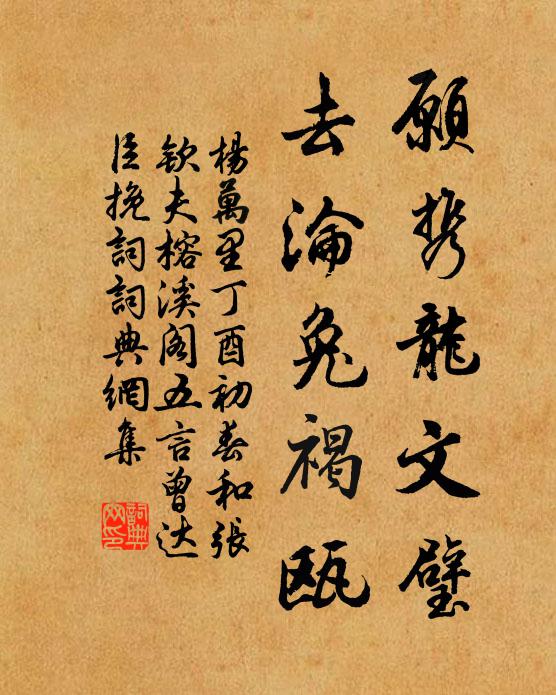 願携龍文璧
去淪兔褐甌
楊萬里丁酉初春和張
欽夫榕溪閣五言曾达
臣挽詞詞典網集
詞典网印